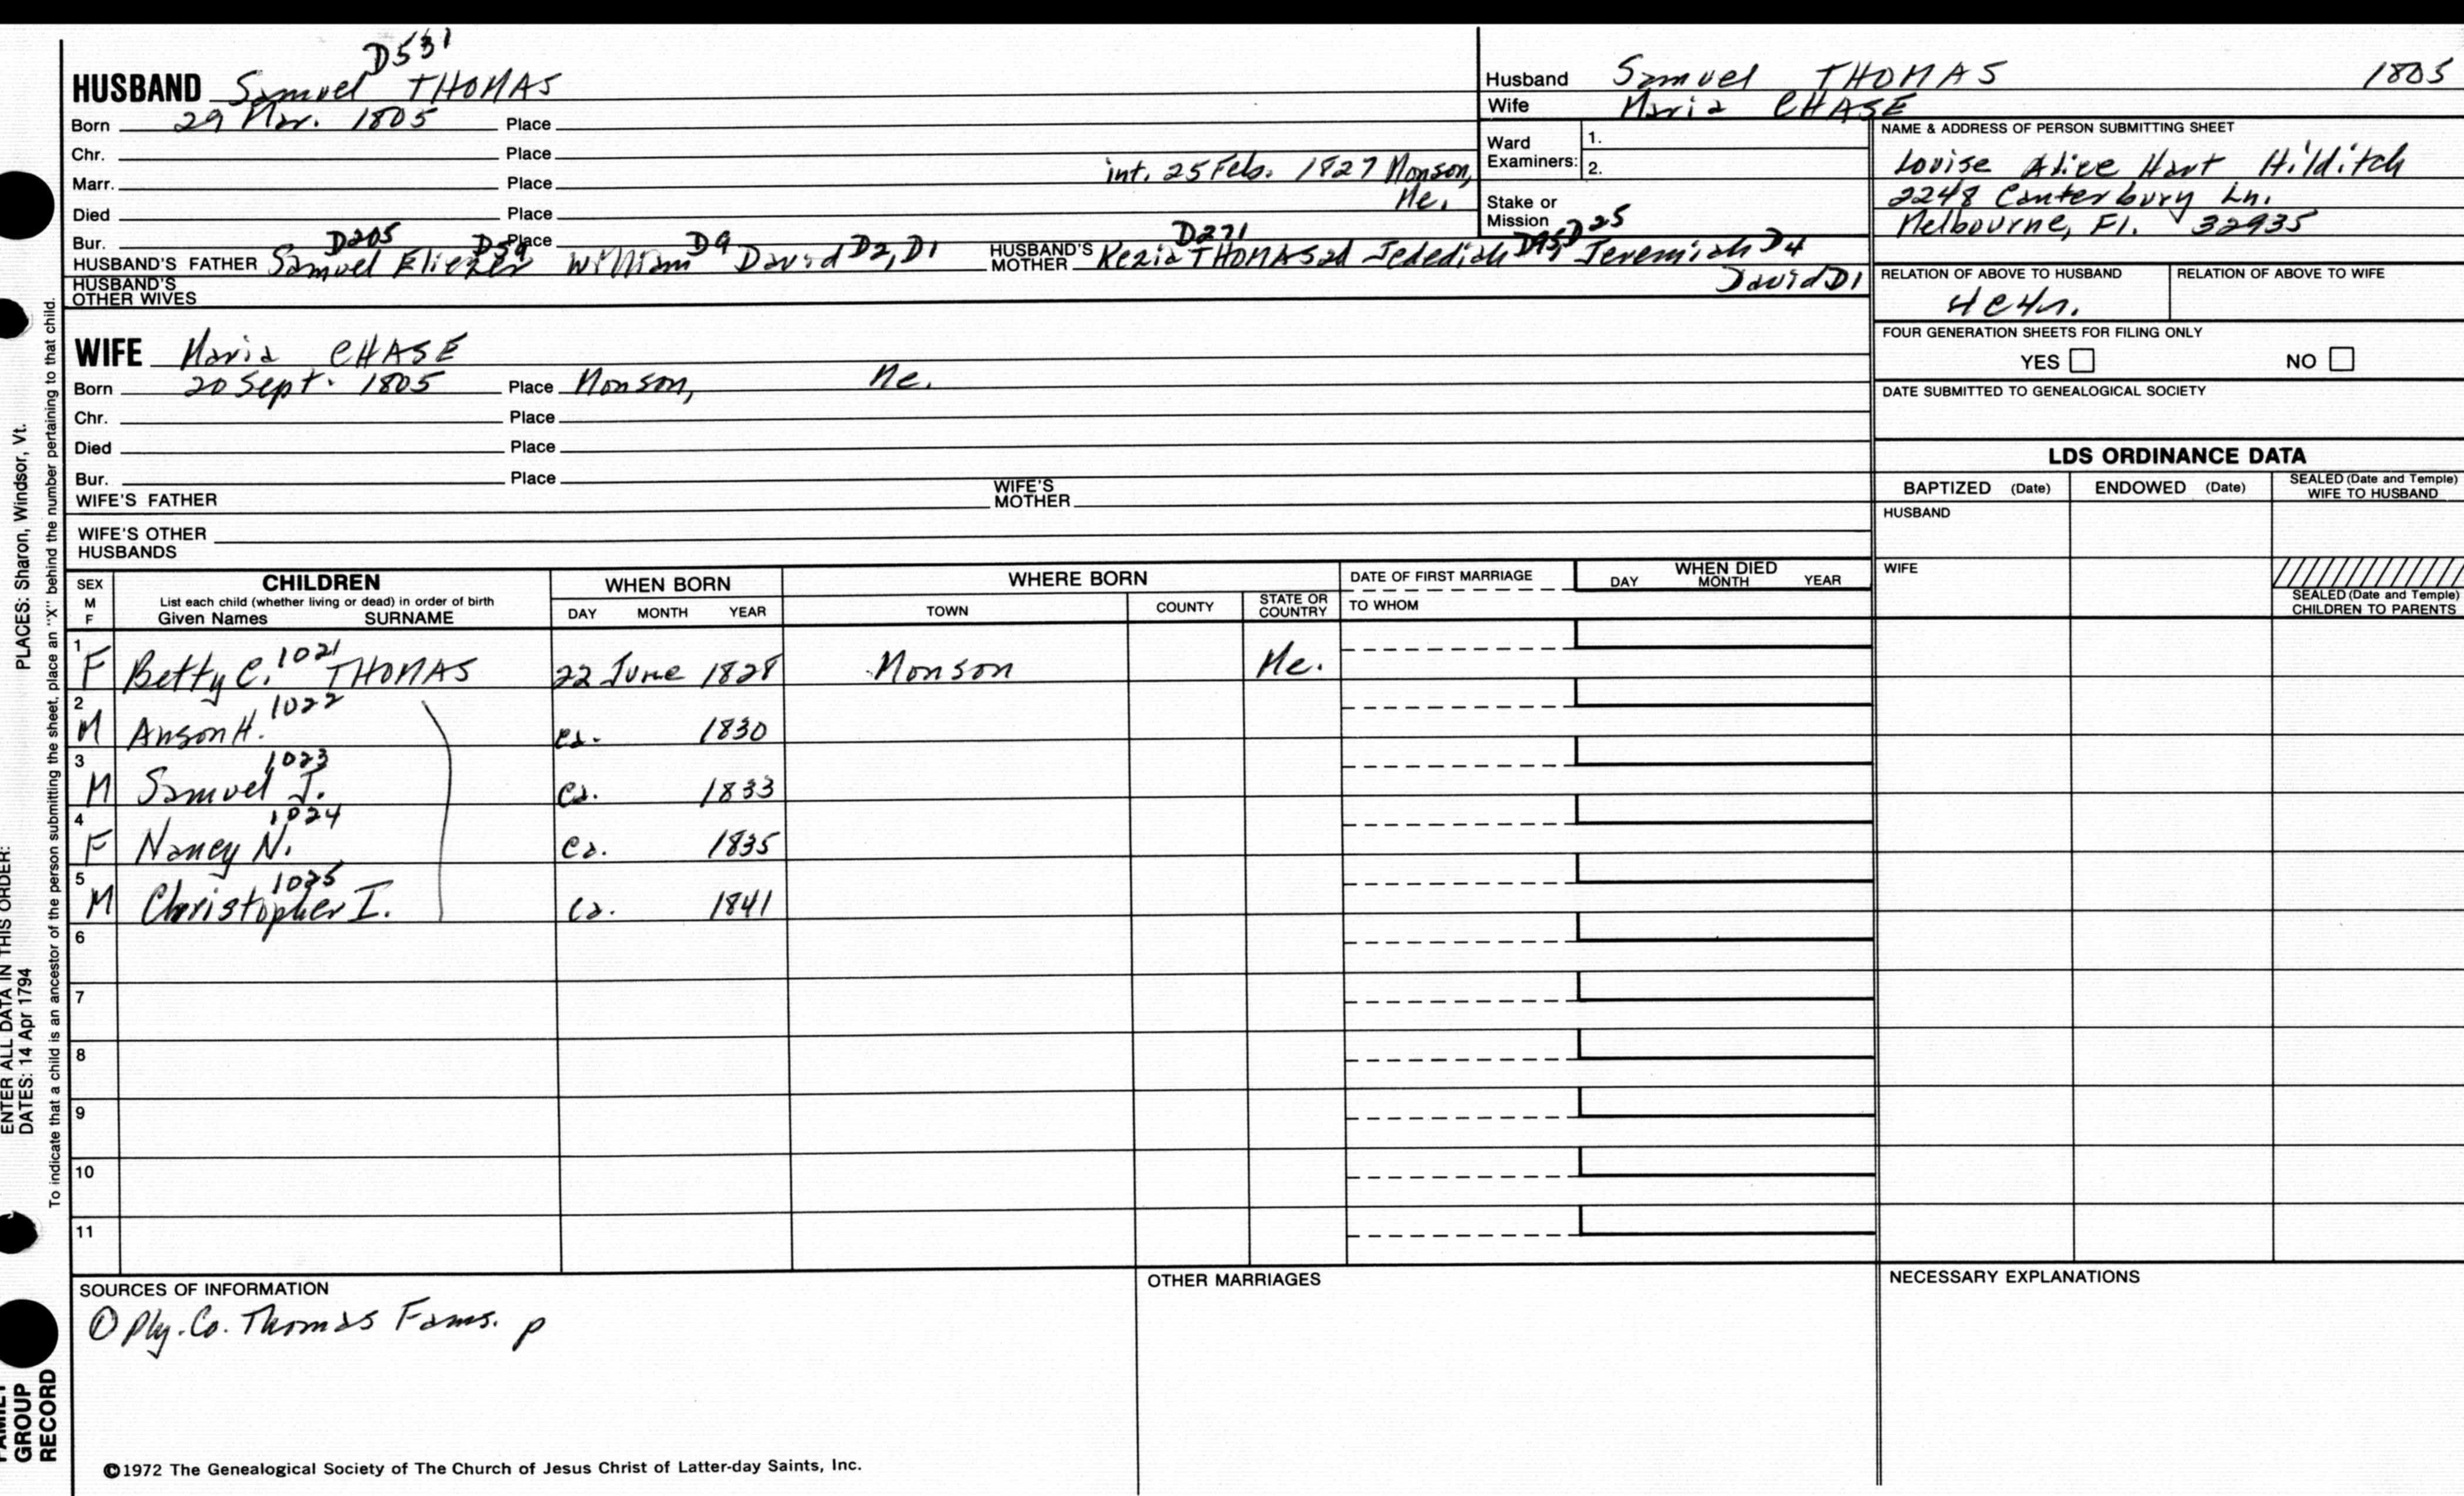 D531
HUSBAND Samuel THOMAS
Born 29 Mar. 1805 Place
Chr. Place
Marr. Place int. 25 Feb. 1827 Monson, Me.
Died Place
Bur. Place
HUSBAND'S FATHER Samuel D205 Eliezer D59 William D9 David D2, D1 HUSBAND'S MOTHER Kezia THOMAS D271 Jedediah D95, D25 Jeremiah D4
David D1
HUSBAND'S OTHER WIVES
WIFE Maria CHASE
Born 20 Sept. 1805 Place Monson, Me.
Chr. Place
Died Place
Bur. Place
WIFE'S FATHER WIFE'S MOTHER
WIFE'S OTHER HUSBANDS
Husband Samuel THOMAS 1805
Wife Maria CHASE
Ward Examiners: 1.
2.
Stake or Mission
NAME & ADDRESS OF PERSON SUBMITTING SHEET
Louise Alice Hart Hilditch
2248 Canterbury Ln.
Melbourne, Fl. 32935
RELATION OF ABOVE TO HUSBAND RELATION OF ABOVE TO WIFE
4c4r.
FOUR GENERATION SHEETS FOR FILING ONLY
YES NO
DATE SUBMITTED TO GENEALOGICAL SOCIETY
LDS ORDINANCE DATA
BAPTIZED (Date) ENDOWED (Date) SEALED (Date and Temple) WIFE TO HUSBAND
HUSBAND
WIFE
SEALED (Date and Temple) CHILDREN TO PARENTS
SEX M F CHILDREN WHEN BORN WHERE BORN DATE OF FIRST MARRIAGE WHEN DIED
List each child (whether living or dead) in order of birth
Given Names SURNAME DAY MONTH YEAR TOWN COUNTY STATE OR COUNTRY TO WHOM DAY MONTH YEAR
1 F Betty C. 1021 THOMAS 22 June 1828 Monson Me.
2 M Anson H. 1022 ca. 1830
3 M Samuel J. 1023 ca. 1833
4 F Nancy N. 1024 ca. 1835
5 M Christopher I. 1025 ca. 1841
6
7
8
9
10
11
SOURCES OF INFORMATION
① Ply. Co. Thomas Fams. p
OTHER MARRIAGES
NECESSARY EXPLANATIONS
©1972 The Genealogical Society of The Church of Jesus Christ of Latter-day Saints, Inc.
GROUP
RECORD
ENTER ALL DATA IN THIS ORDER:
DATES: 14 Apr 1794
PLACES: Sharon, Windsor, Vt.
To indicate that a child is an ancestor of the person submitting the sheet, place an "X" behind the number pertaining to that child.